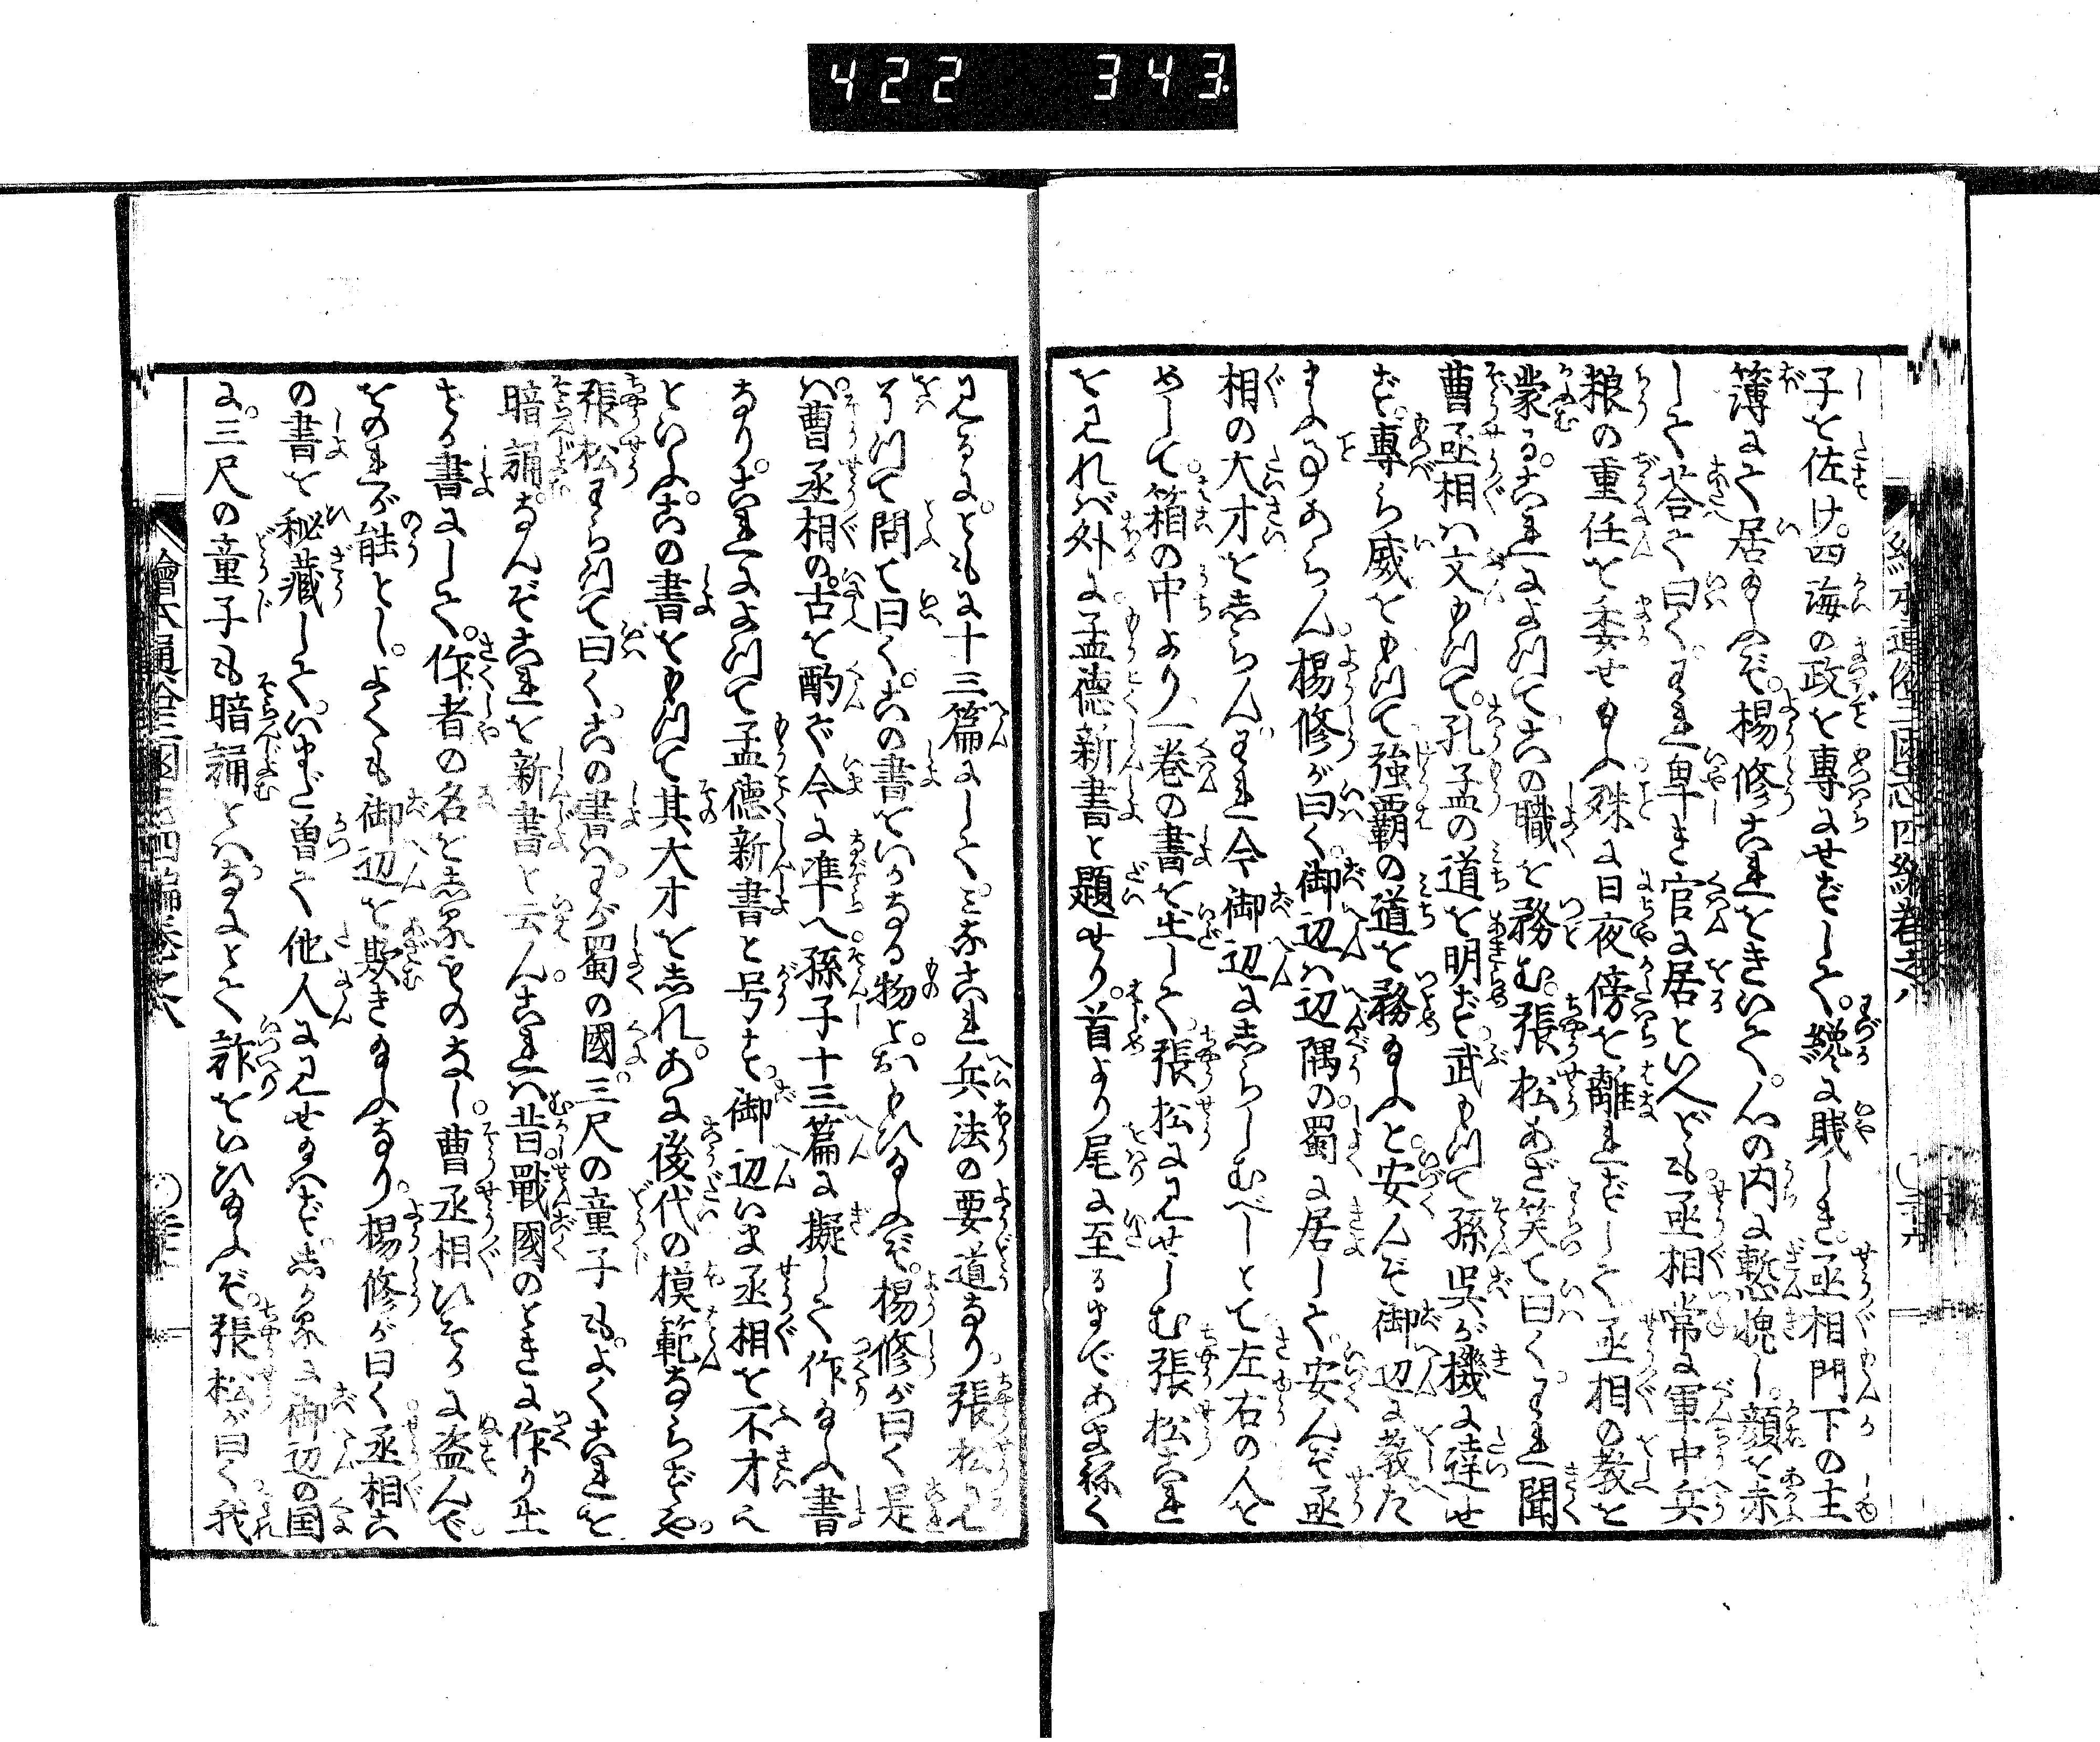 422 343
子を佐け。四海の政を專にせずして。纔に賤しき。丞相門下の主
簿にて居給ふぞ。楊修これをきいて。心の内に慙愧し。顔を赤
して荅て曰く。われ卑き官に居といへども。丞相常に軍中兵
粮の重任を委せ給ふ。殊に日夜傍を離れずして。丞相の教を
蒙る。これによつてこの職を務む。張松あざ笑て曰く。われ聞
曹丞相は文もつて。孔孟の道を明ず武もつて孫呉が機に達せ
ず。專ら威をもつて強覇の道を務給ふと。安んぞ御辺に教た
まふ事あらん。楊修が曰く。御辺は辺隅の。蜀に居して。安んぞ丞
相の大才をしらん。われ今御辺にしらしむべしとて。左右の人を
めして。箱の中より一巻の書を出して。張松に見せしむ張松これ
を見れば外に孟德新書と題せり。首より尾に至るまであまねく
見るに。ともに十三篇にして。みなこれ兵法の要道なり。張松見
をはつて問て曰く。この書をいかなる物とおもひ給ふぞ。楊修が曰く是
は曹丞相の。古を酌ぐ今に準へ。孫子十三篇に擬して作給ふ書
なり。これによつて孟德新書と号す。御辺いま丞相を不才なり
といふ。この書をもつて其大才をしれ。あに後代の模範ならずや。
張松わらつて曰く。この書は。わが蜀の國。三尺の童子も。よくこれを
暗誦。なんぞこれを新書と云ん。これは昔戰國のときに作り出
せる書にして。作者の名をしるものなし。曹丞相ひそかに盗んで。
をのれが能とし。よくも御辺を欺き給ふなり。楊修が曰く丞相こ
の書を秘藏して。いまだ曽て他人に見せ給はず。しかるに御辺の国
に。三尺の童子も暗誦とは。なにとて詐をいひ給ふぞ。張松が曰く我
繪本通俗三國志四編巻之八